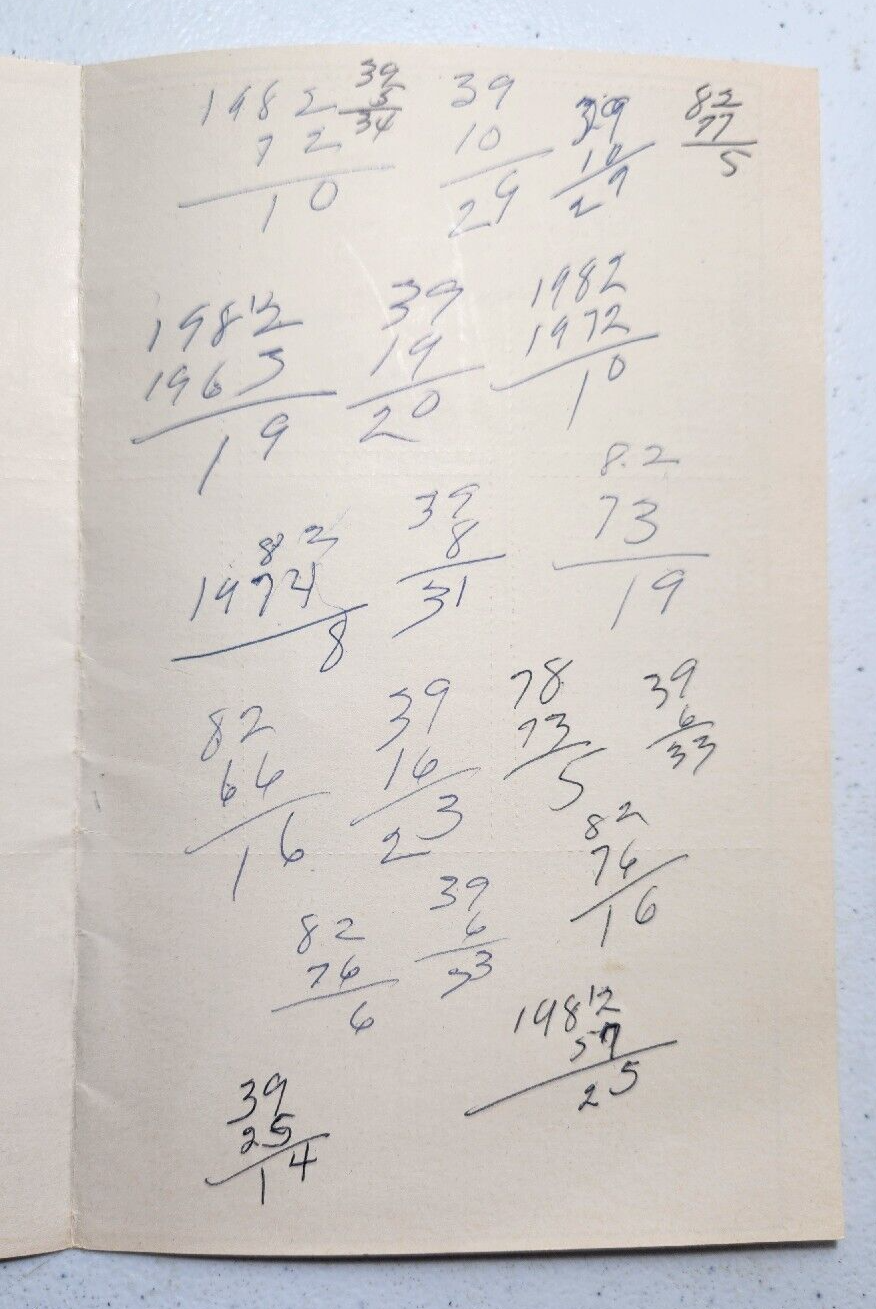 1982
72
10
39
5
34
39
10
29
39
10
29
82
77
5
1982
1963
19
39
19
20
1982
1972
10
82
1974
8
39
8
31
8.2
73
19
82
66
16
39
16
23
78
73
5
39
6
33
82
76
6
39
6
33
82
76
16
1982
57
25
39
25
14